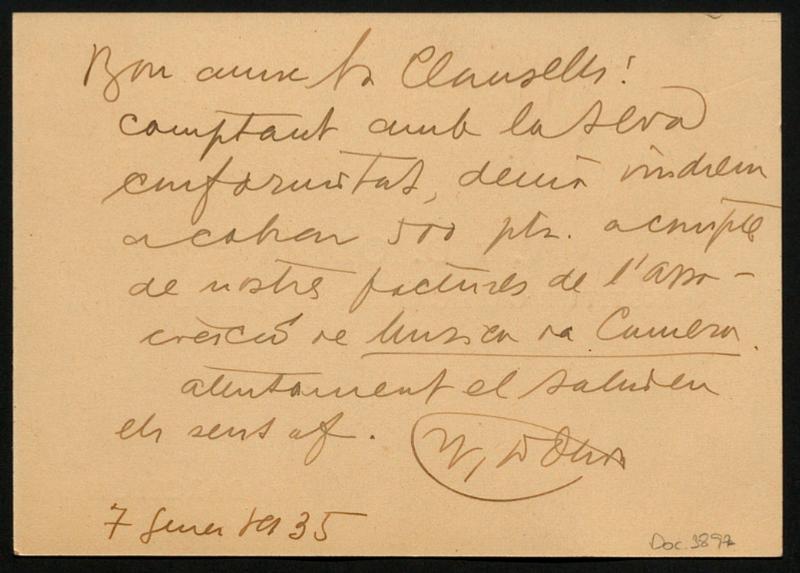 Bon amic Sr Clausells:
comptant amb la seva
conformitat, demà vindrem
a cobrar 500 pts. a compte
de nostres factures de l'asso-
ciació de Musica da Camera.
atentament el saluden
els seus af.
7 gener del 35
Doc. 3897